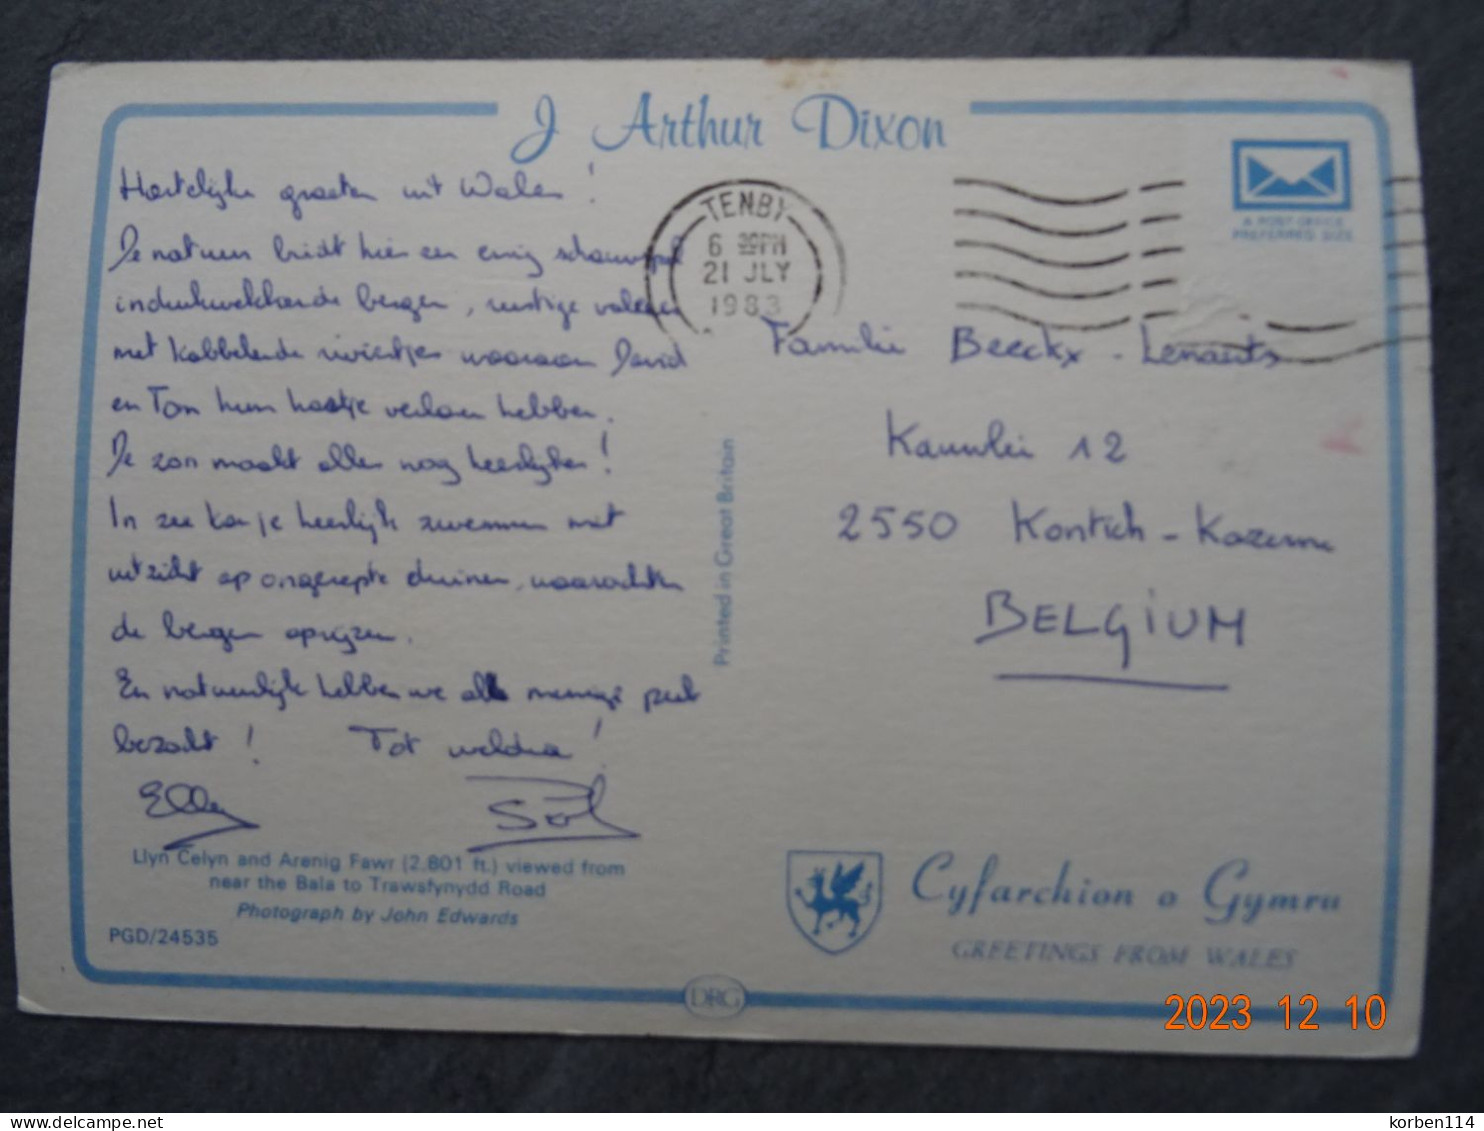 J Arthur Dixon
Hartelijke groeten uit Wales!
De natuur biedt hier een enig schouwspel
indrukwekkende bergen, rustige valeien
met kabbelende riviertjes waaraan David
en Tom hun hartje verloren hebben.
De zon maakt alles nog heerlijker!
In zee kan je heerlijk zwemmen met
uitzicht op ongerepte duinen, waarachter
de bergen oprijzen.
En natuurlijk hebben we al menige pub
bezocht! Tot weldra!
Elly
Llyn Celyn and Arenig Fawr (2,801 ft.) viewed from
near the Bala to Trawsfynydd Road
Photograph by John Edwards
PGD/24535
Printed in Great Britain
DRG
TENBY
6 PM
21 JLY
1983
A POST OFFICE
PREFERRED SIZE
Familie Beeckx - Lenaerts
12
2550 Kontich - Kazerne
BELGIUM
Cyfarchion o Gymru
GREETINGS FROM WALES
2023 12 10
korben114